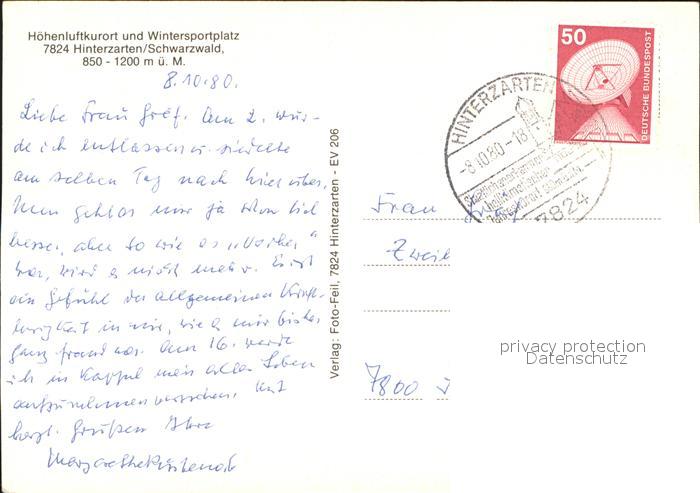 Höhenluftkurort und Wintersportplatz
7824 Hinterzarten/Schwarzwald,
850 - 1200 m ü. M.
8.10.80.
Liebe Frau Gref. Am 2. wur-
de ich entlassen u. siedelte
am selben Tag nach hier über.
Nun geht es mir ja schon viel
besser, aber so wie es "Vorher"
war, wird es nicht mehr. Es ist
ein Gefühl der allgemeinen
in mir, wie es mir bisher
ganz fremd war. Am 16. werde
ich in Kappel mein altes Leben
aufzunehmen versuchen. Mit
herzl. Grüßen Ihre
Margarethe
Verlag: Foto-Feil, 7824 Hinterzarten - EV 206
50
DEUTSCHE BUNDESPOST
HINTERZARTEN
-8.10.80-18
7824
Frau
7800
privacy protection
Datenschutz